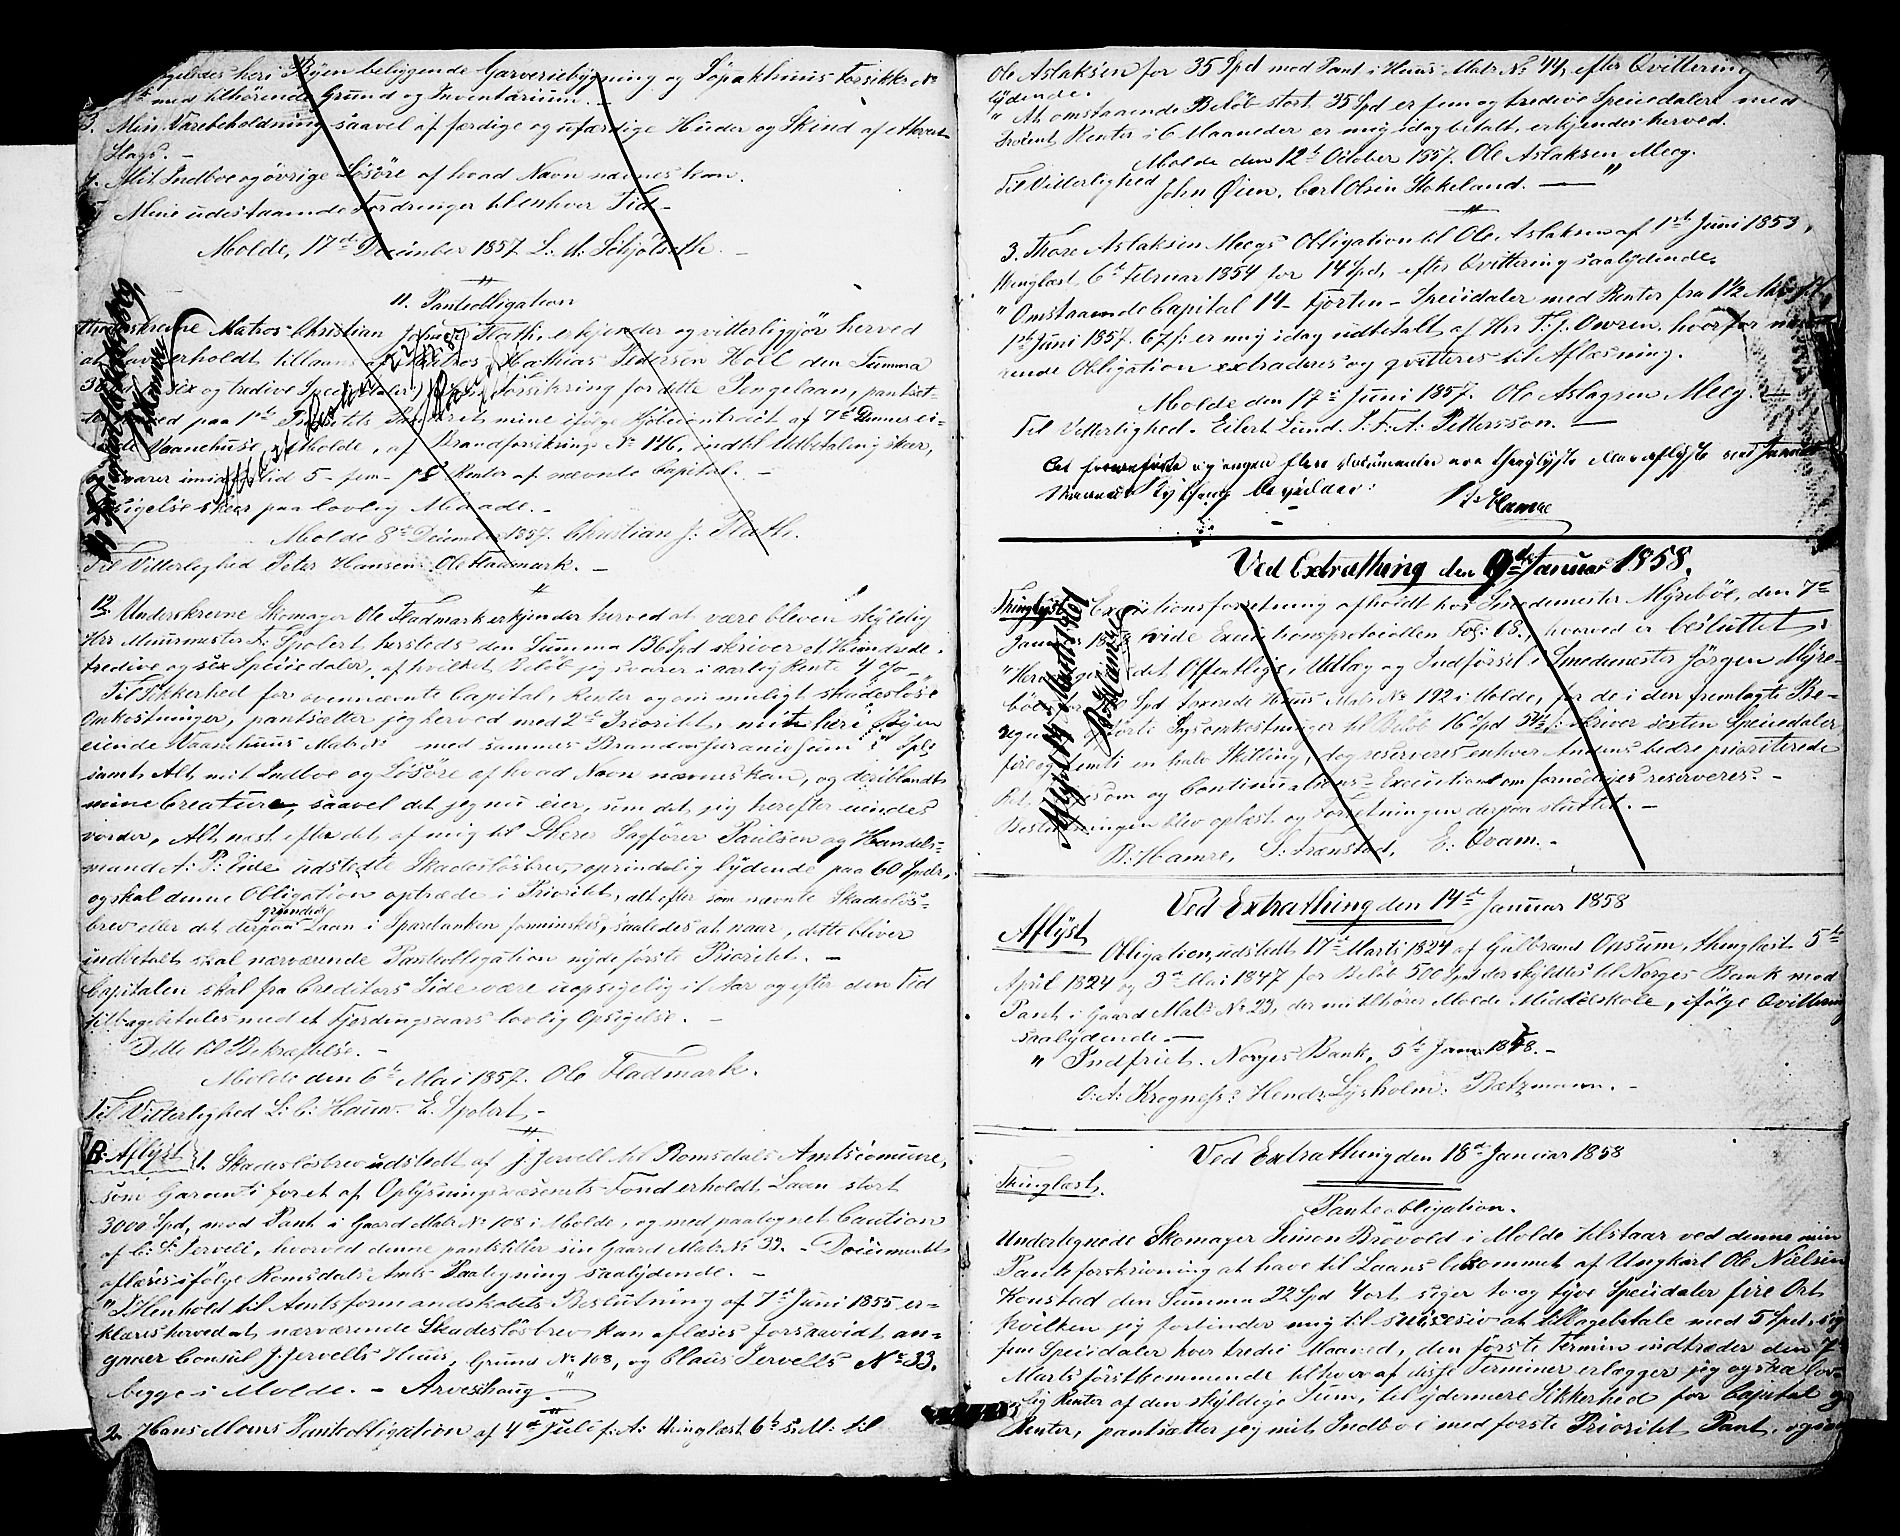 heri Byen beliggende Garveriebygning og Söpakhuus Forsikks No
med tilhörende Grund og Inventarium. -
3. Min Varebeholdning saavel af færdige og ufærdige Huder og Skind af ethvert
Slags. -
4. Mit Indboe og övrige Lösöre af hvad Navn nævnes kan.
Mine udestaaende Fordringer til enhver Tid -
Molde, 17de December 1857. L: A: Schjölseth. -
11. Panteobligation
Underskrevne Matros Christian Flath, erkjender og vitterliggjör herved
at have erholdt tillaans af Matros Mathias Pederson Hoel den Summa
36 sex og tredive Specidaler, Forsikring for dette Pengelaan, pantsæt-
ved paa 1ste Prioritets mine ifölge Kjöbecontract af 7de
Vaanehuus i Molde, af Brandforsikrings No 146, indtil Udbetaling skeer,
og svarer imidlertid 5 - fem - pC Renter af nævnte Capital. -
Opsigelse skeer paa lovlig Maade. -
Molde 8de December 1857. Christian J: Flath.
Til Vitterlighed Peter Hansen. Ole Fladmark. -
12. Underskrevne Skomager Ole Fladmark erkjender herved at være bleven skyldig
Hrr Muurmester E: Spolert hersteds den Summa 136 Spd skriver et Hundrede
tredive og sex Speciedaler, af hvilket Belöb jeg svarer i aarlig Rente 4 %
Til Sikkerhed for ovennævnte Capital, Renter og om muligt skadeslöse
Omkostninger, pantsætter jeg herved med 2den Prioritet, mit heri Byen
eiende Vaanehuus Matr No med sammes Brandassurancesum Spd
samt Alt mit Indboe og Lösöre af hvad Navn nævnes kan, og deriblandt
mine Creature, saavel det jeg nu eier, som det jeg herefter eiendes
vorder, Alt næst efter det af mig til Dherr Sagförer Paulsen og Handels-
mand A: P: Eide udstedte Skadeslösbrev, oprindelig lydende paa 60 Spdr,
og skal denne Obligation optræde i Prioritet, alt efter som nævnte Skadeslös-
brev eller det derpaa grundede Laan i Sparebanken forminskes, saaledes at naar, dette bliver
indbetalt skal nærværende Panteobligation nyde förste Prioritet. -
Capitalen skal fra Creditors Side være uopsigelig i et Aar og efter den Tid
tilbagebetales med et Fjerdingaars lovlig Opsigelse. -
Dette til Bekræftelse. -
Molde den 6te Mai 1857. Ole Fladmark.
Til Vitterlighed L: C: Hauw. E. Spolert -
B. Aflyst 1. Skadeslösbrev udstedt af J. Jervell til Romsdals Amtscomune,
som Garanti for et af Oplysningsvæsenets Fond erholdt Laan stort
3000 Spd, mod Pant i Gaard Matr No 108 i Molde, og med paategnet Caution
af C: P: Jervell, hvorved denne pantstiller sin Gaard Matr No 33. - Documentet
aflæses ifölge Romsdals Amts Paategning saalydende. -
"I Henhold til Amtsformandskabets Beslutning af 7de Juni 1855 er-
klæres herved at nærværende Skadeslösbrev kan aflæses forsaavidt an-
gaaer Consul J. Jervells Huus, Grund No 108, og Claus Jervells No 33.
begge i Molde. - Arveschoug."
2. Hans Moens Panteobligation af 4de Juli f: A: thinglæst 6te s: M: til
Ole Aslaksen for 35 Spd med Pant i Huus Matr No 44, efter Qvittering
lydende.
"At omstaaende Belöb stort 35 Spd er fem og tredive Speciedaler med
Procent Renter i 6 Maaneder er mig idag betalt, erkjendes herved.
Molde den 12te October 1857. Ole Aslaksen Meeg.
Til Vitterlighed John Øien, Carl Olsen Stokeland. - "
3. Thore Aslaksen Meegs Obligation til Ole Aslaksen af 1ste Juni 1853,
thinglæst 6te Februar 1854 for 14 Spd, efter Qvittering saalydende.
"Omstaaende Capital 14 - Fjorten - Speciedaler med Renter fra 1 1/2
1ste Juni 1857. 67 s: er mig idag udbetalt af Hr T. J. Owren, hvorfor nærvæ-
rende Obligation extraderes og qvitteres til Aflæsning.
Molde den 17de Juni 1857. Ole Aslagsen Meeg. -
Til Vitterlighed. Eilert Lund. P. F. A. Pettersson. -
At foranförte og ingen flere Documenter ere thinglyste eller aflyste ved
bevidner:
B. Hamre
Ved Extrathing den 9de Januar 1858.
Thinglyst Executionsforretning afholdt hos Smedemester Myreböe, den 7de
Januar 1858 vide Executionsprotocollen Fol: 68, hvorved er besluttet:
det Offentlige Udlæg og Indförsel i Smedemester Jörgen Myre-
böes Spd taxerede Huus Matr No 192 i Molde, for de i den fremlagte Be-
regning opförte Sagsomkostninger til Belöb 16 Spd skriver sexten Speciedaler
fire og femti en halv Skilling, dog reserveres enhver Andens bedre prioriterede
Ret, ligesom og Continuations-Execution om fornödiges reserveres. -
Beslutningen blev oplæst og Forretningen derpaa sluttet. -
B: Hamre, S: Frænstad, E: Qvam. -
Aflyst 14 Marts 1861
B. Hamre
Ved Extrathing den 14de Januar 1858
Aflyst
Obligation, udstedt 17de Marts 1824 af Gulbrand Opsum, thinglæst 5te
April 1824 og 3de Mai 1847 for Belöb 500 Spd der skyldtes til Norges Bank mod
Pant i Gaard Matr No 23, der nu tilhörer Molde Middelskole, ifölge Qvittering
saalydende. -
" Indfriet. Norges Bank, 5te Janr 1858. -
O: A: Krogness. Hendr. Lysholm. Bætzmann. -
Ved Extrathing den 18de Januar 1858
Thinglæst.
Panteobligation.
Undertegnede Skomager Simon Brövold i Molde tilstaar ved denne min
Pantforskrivning at have til Laans bekommet af Ungkarl Ole Nielsen
Honstad den Summa 22 Spd 4 ort siger to og tyve Speciedaler fire Ort
hvilken jeg forbinder mig til succesiv at tilbagebetale med 5 Spd, siger
fem Speciedaler hver tredie Maaned, den förste Termin indtræder den 7de
Marts förstkommende til hver af disse Terminer erlægger jeg ogsaa lov-
lig Renter af den skyldige Sum, til ydermere Sikkerhed for Capital og
Renter, pantsætter jeg mit Indboe med förste Prioritets Pant, ogsaa